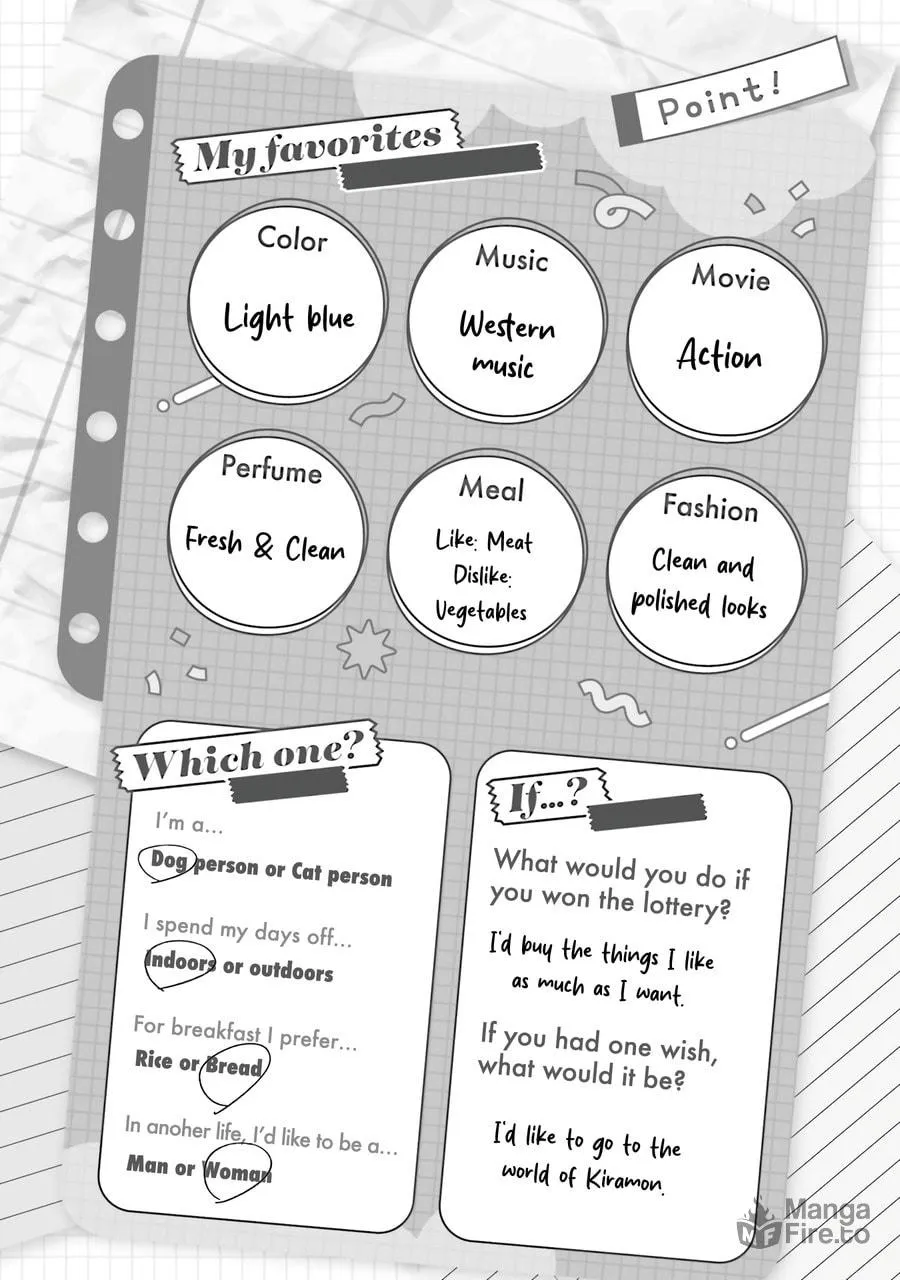 Point!
My favorites
Color
Light blue
Music
Western
music
Movie
Action
Perfume
Fresh & Clean
Meal
Like: Meat
Dislike:
Vegetables
Fashion
Clean and
polished looks
Which one?
I'm a...
Dog person or Cat person
I spend my days off...
Indoors or outdoors
For breakfast I prefer...
Rice or Bread
In anoher life, I'd like to be a...
Man or Woman
If...?
What would you do if
you won the lottery?
I'd buy the things I like
as much as I want.
If you had one wish,
what would it be?
I'd like to go to the
world of Kiramon.
MF
Manga
Fire.to